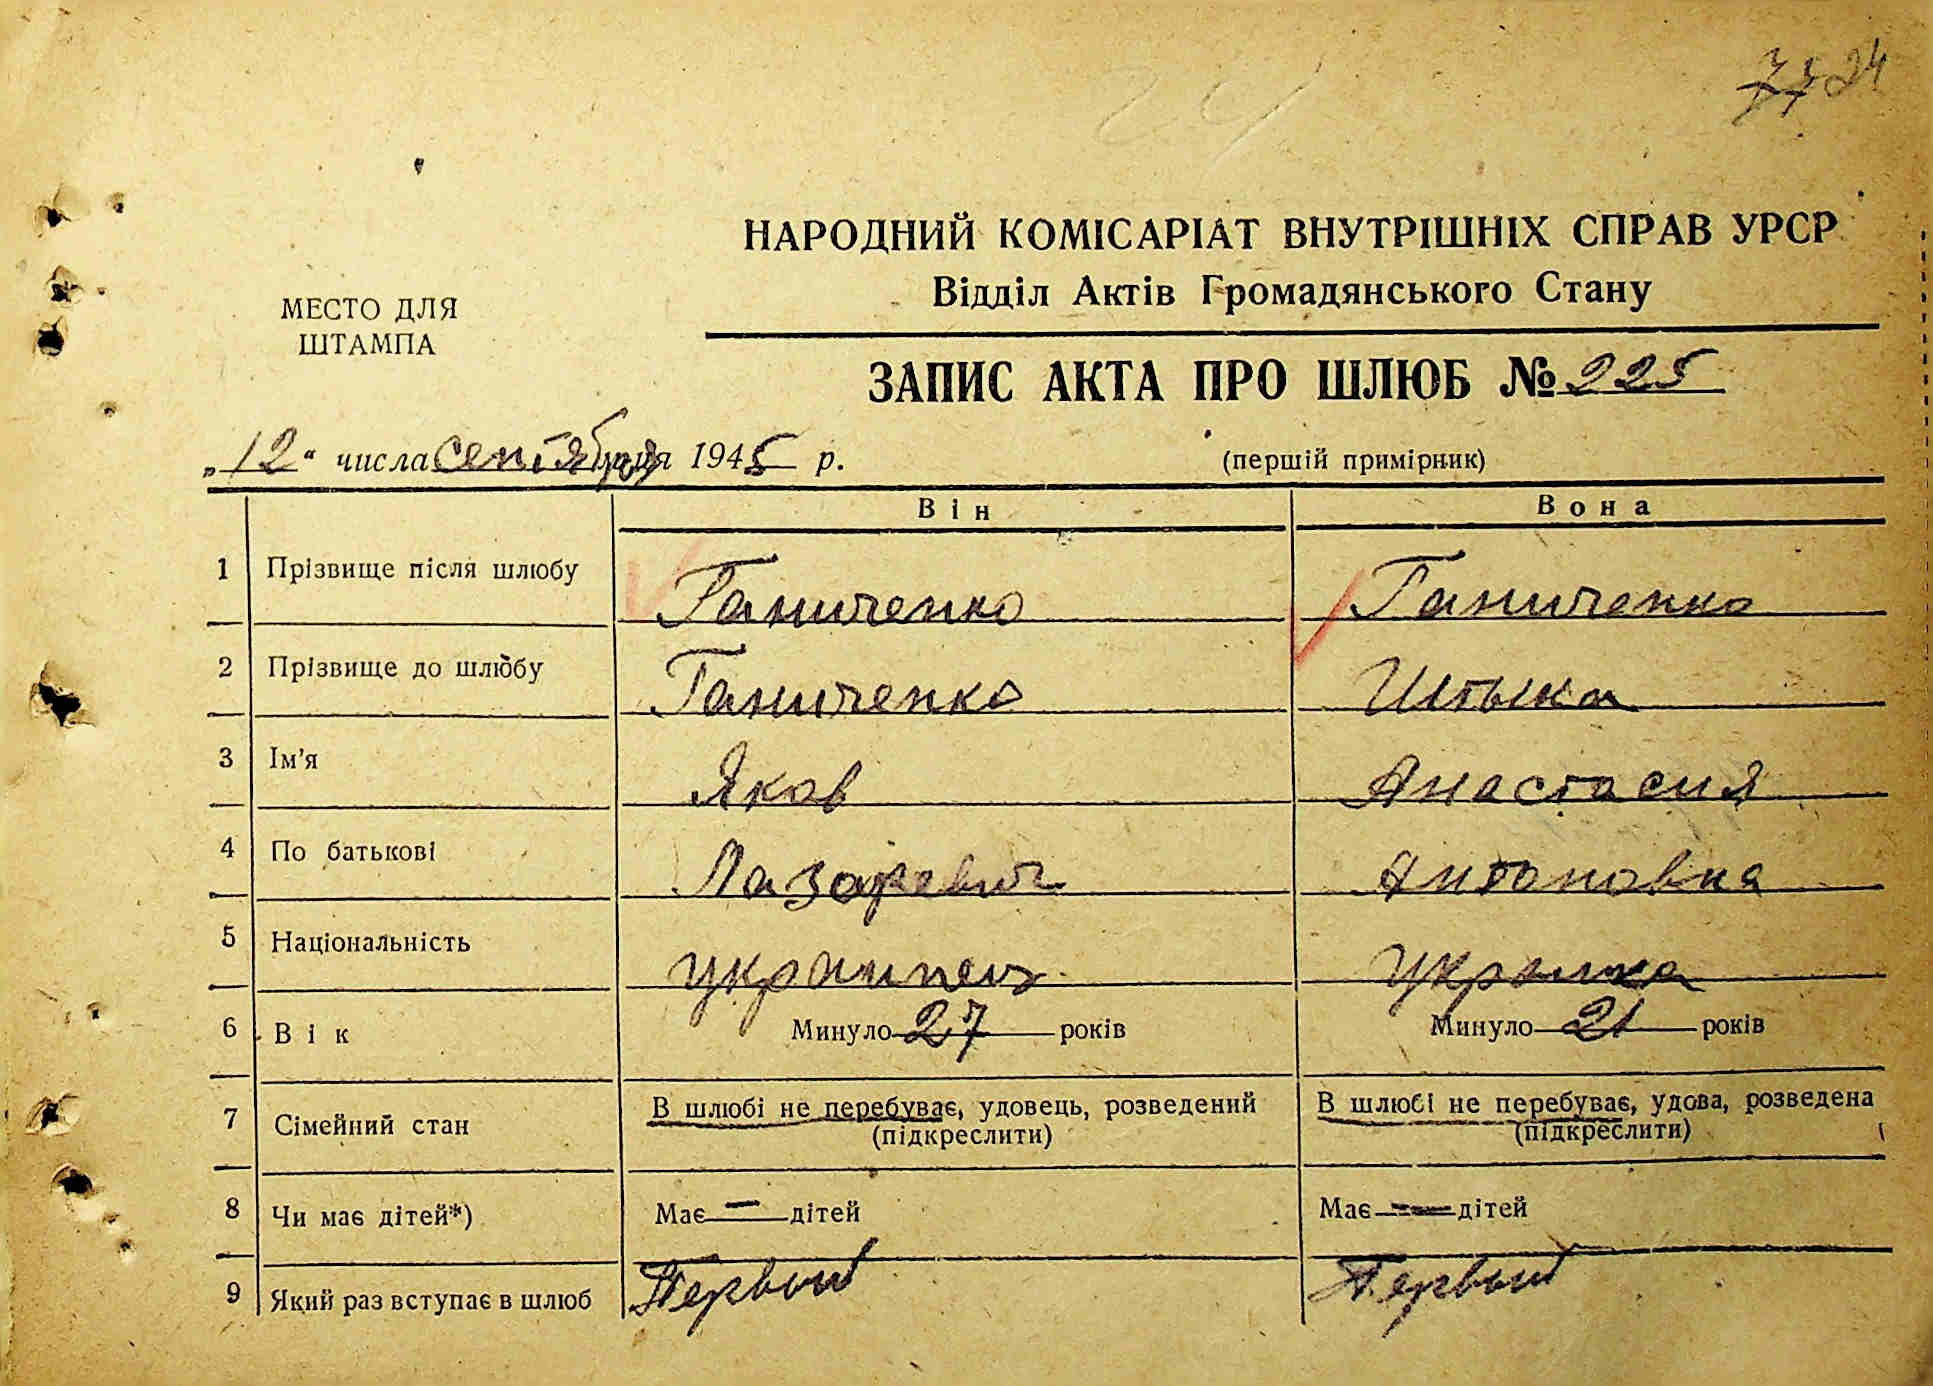 24
НАРОДНИЙ КОМІСАРІАТ ВНУТРІШНІХ СПРАВ УРСР
Відділ Актів Громадянського Стану
МЕСТО ДЛЯ
ШТАМПА
ЗАПИС АКТА ПРО ШЛЮБ № 225
„12“ числа сентября 1945 р.
(першій примірник)
Він Вона
1 Прізвище після шлюбу Ганиченко Ганиченко
2 Прізвище до шлюбу Ганиченко
3 Ім'я Яков Анастасия
4 По батькові Лазаревич Антоновна
5 Національність украинец укралка
6 Вік Минуло 27 років Минуло 21 років
7 Сімейний стан В шлюбі не перебуває, удовець, розведений В шлюбі не перебуває, удова, розведена
(підкреслити) (підкреслити)
8 Чи має дітей*) Має — дітей Має — дітей
9 Який раз вступає в шлюб Первый Первый